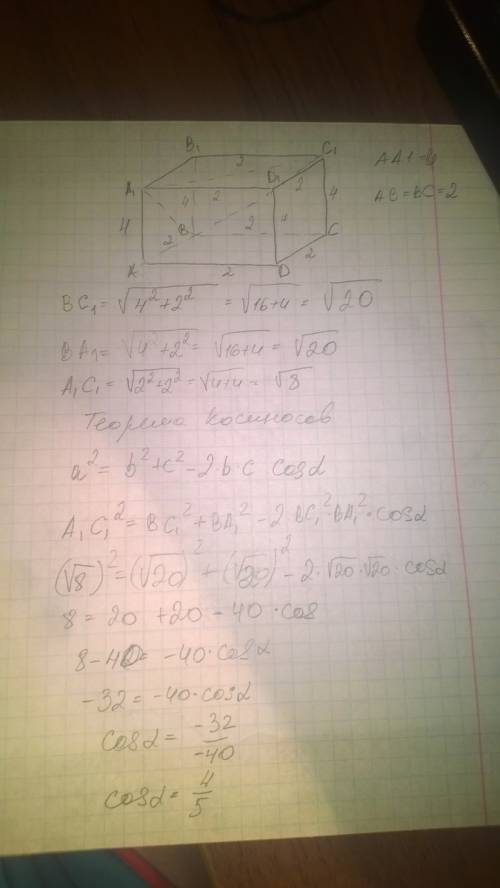 B₁ 2 C₁
AA1 = 4
A₁ D₁ 2
4 2 4
AB=BC=2
4 B 2 4 C
2 2
A 2 D
BC₁= √4²+2² = √16+4 = √20
BA₁= √4²+2² = √16+4 = √20
A₁C₁ = √2²+2² = √4+4 = √8
Теорема косинусов
a² = b²+c²-2·b c cosα
A₁C₁² = BC₁² + BA₁² - 2 BC₁²·BA₁²·cosα
(√8)² = (√20)² + (√20)² - 2·√20·√20·cosα
8 = 20 +20 - 40 ·cos
8-40= -40·cosα
-32 = -40·cosα
cosα = -32/-40
cosα = 4/5